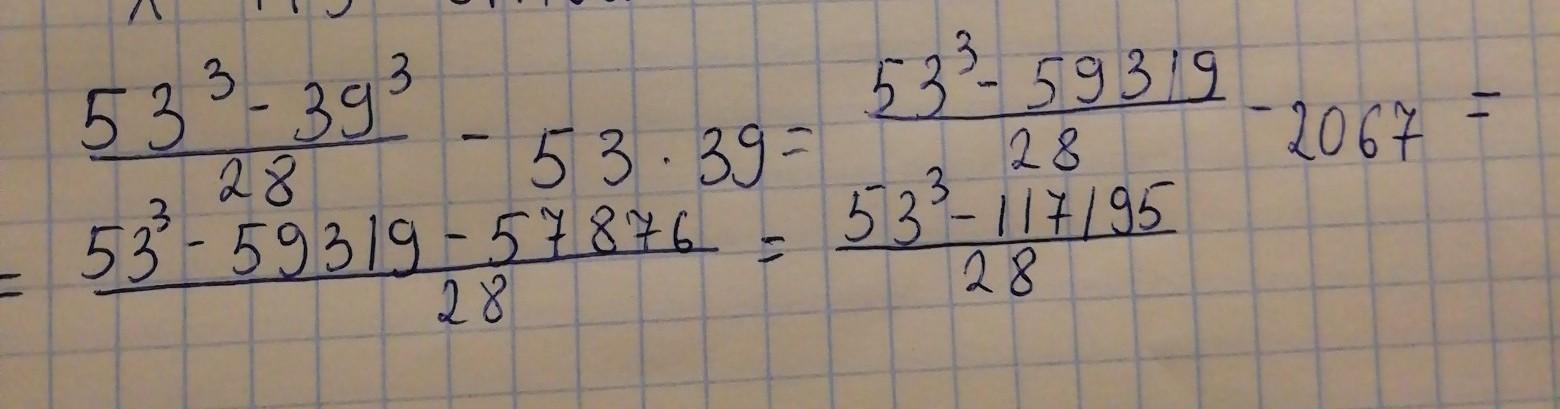 53³ - 39³ / 28 - 53 · 39 = 53³ - 59319 / 28 - 2067 =
= 53³ - 59319 - 57876 / 28 = 53³ - 117195 / 28